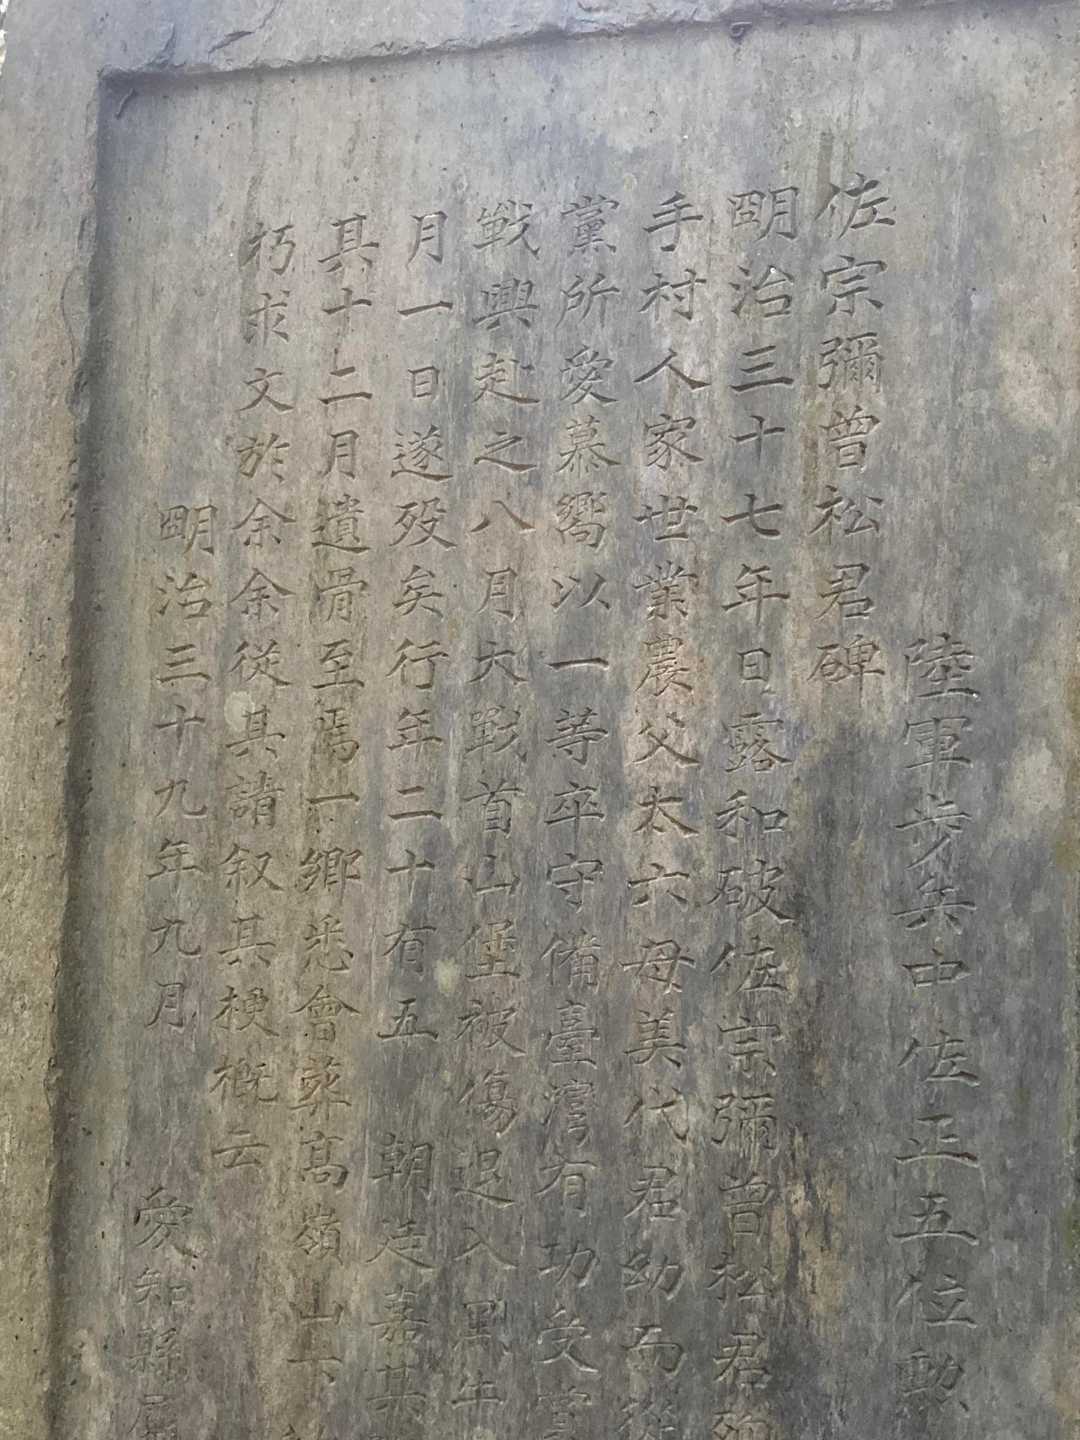 佐宗彌曾松君碑
陸軍歩兵中佐正五位勲
明治三十七年日露和破佐宗彌曾松君
手村人家世業農父太六母美代君幼而從
黨所愛慕嚮以一等卒守備臺灣有功受賞
戦興赴之八月大戰首山堡被傷退入黒牛
月一日遂歿矣行年二十有五　朝廷嘉其
其十二月遺骨至焉一鄉悉會葬髙嶺山下
朽求文於余余從其請叙其梗概云
明治三十九年九月　愛知縣